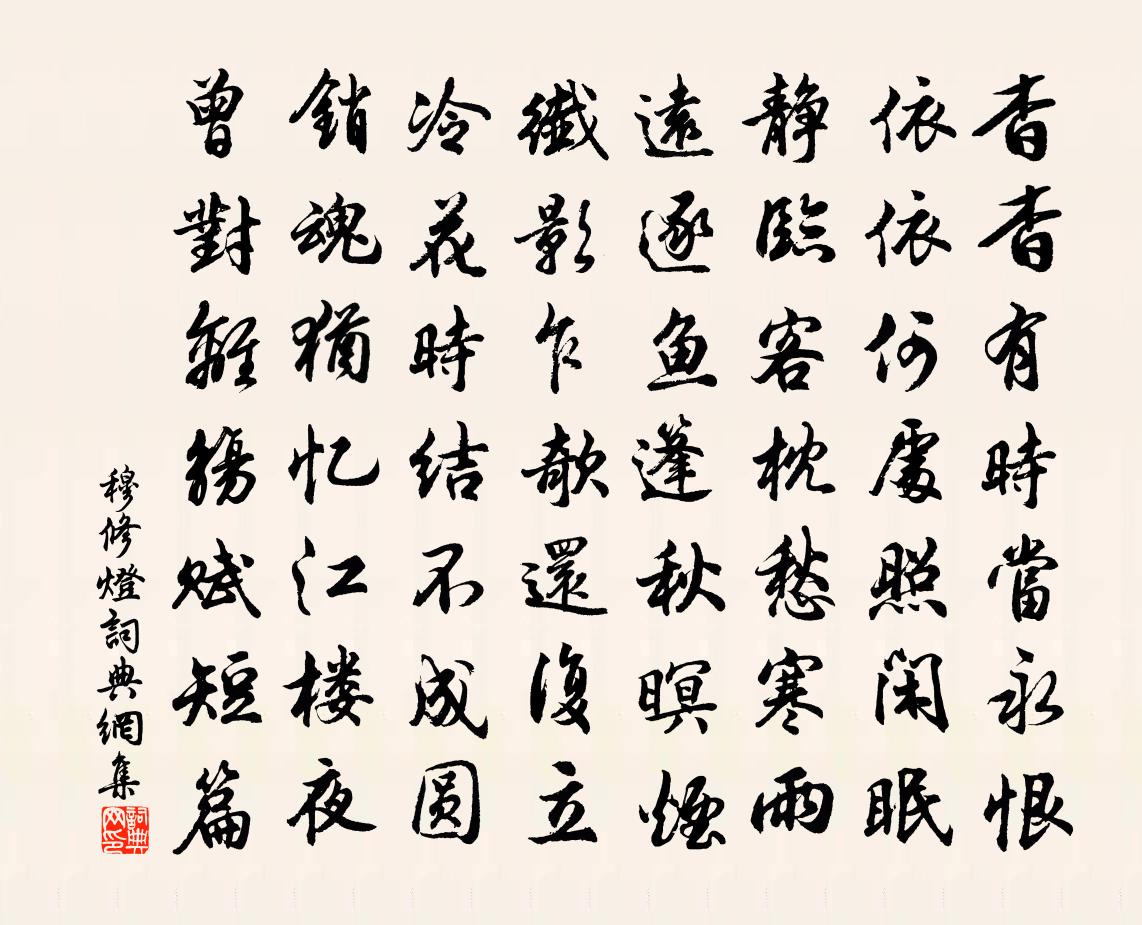 杳杳有時當永恨
依依何處照閑眠
静臨客枕愁寒雨
遠逐鱼篷秋暝煙
纖影乍欹還復立
冷花時結不成圆
銷魂猶忆江楼夜
曾對離觴赋短篇
穆修燈詞典網集
詞典网印